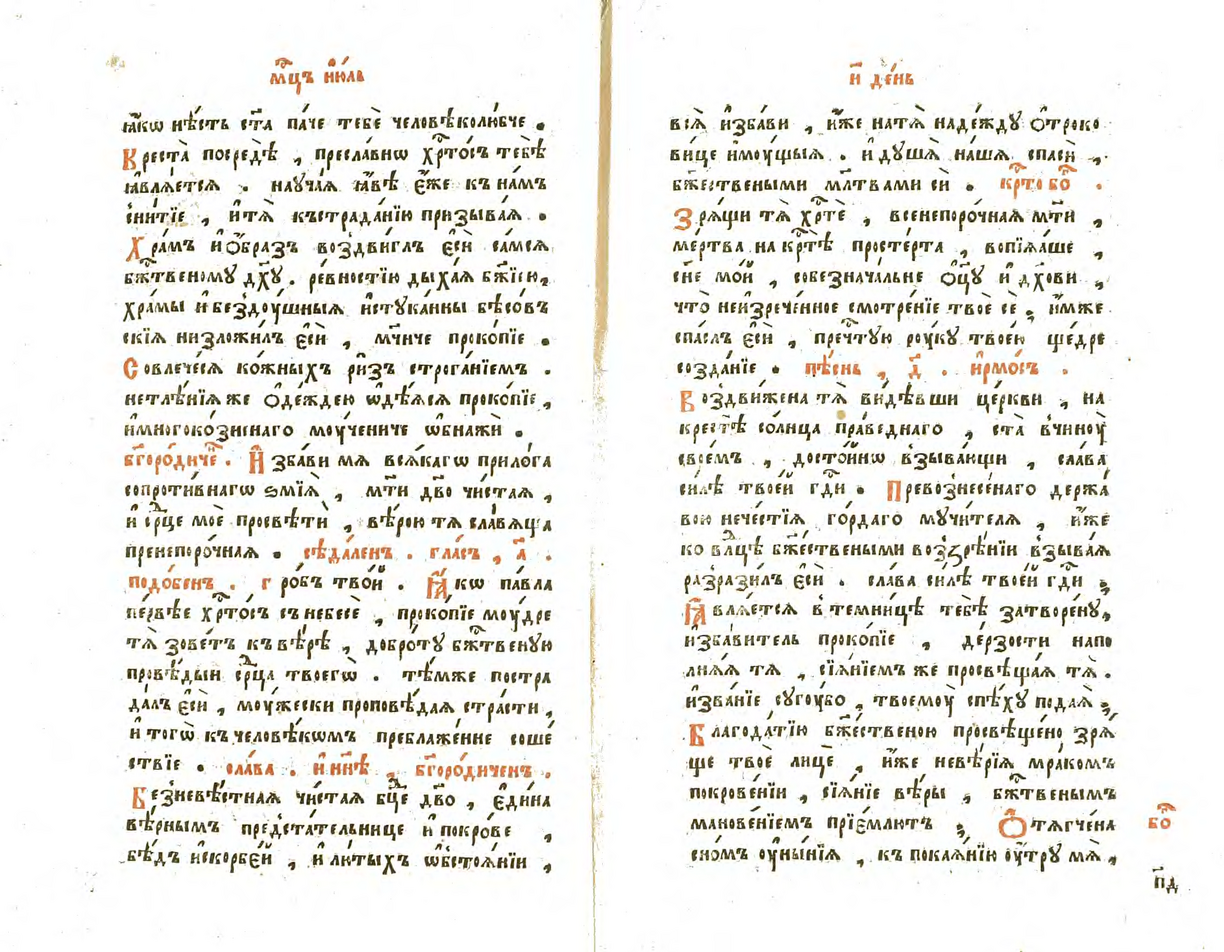 мⷭ҇цъ и҆ю́ль
ꙗ҆́кѡ нѣ́сть ст҃а па́че тебѐ человѣколю́бче .
Креста̀ посредѣ̀ , пресла́внѡ хрⷭ҇то́съ тебѣ̀
ꙗ҆влѧ́етсѧ . научаѧ̀ ꙗ҆́вѣ є҆́же къ на́мъ
сни́тїе , и҆ тѧ̀ къстрада́нїю призыва́ѧ .
Хра́мъ и҆ѻ҆́бразъ воздви́глъ є҆сѝ са́мсѧ
бжⷭ҇твеному дх҃у . ре́вностїю дыха́ѧ бж҃їею,
хра́мы и҆бездꙋ́шныѧ и҆стука́нны бѣсо́въ
скїѧ низложи́лъ є҆сѝ , мч҃ниче проко́пїе .
Совлече́сѧ ко́жныхъ ри́зъ строга́нїемъ .
нетлѣ́нїѧ же ѻ҆де́ждею ѡ҆дѣ́ѧсѧ проко́пїе ,
и҆многоко́зненаго моу́чениче ѡ҆бнажѝ .
бг҃оро́диче . И҆збави мѧ всѧ́кагѡ прило́га
сопроти́внагѡ ѕмїѧ̀ , мт҃и дв҃о чи́стаѧ ,
и҆ срⷣце моѐ просвѣтѝ , вѣ́рою тѧ сла́вѧща
пренепоро́чнаѧ . сѣда́ленъ . гла́съ , а҃ .
подо́бенъ . гро́бъ тво́й . Ꙗ҆́кѡ па́вла
пе́рвѣе хрⷭ҇то́съ съ небесѐ , проко́пїе моу́дре
тѧ̀ зове́тъ къ вѣ́рѣ , добро́ту бжⷭ҇твеную
провѣ́дыи срⷣца твоегѡ̀ . тѣ́мже постра
да́лъ є҆сѝ , моу́жески проповѣ́даѧ стра́сти ,
и҆ того̀ къ человѣ́кѡмъ преблаже́нне соше́
ствїе . сла́ва . и҆ ны́нѣ , бг҃оро́диченъ .
Безневѣ́стнаѧ чи́стаѧ бц҃е дв҃о , є҆ди́на
вѣ́рнымъ предста́тельнице и҆ покро́ве ,
бѣ́дъ и҆скорбе́й , и҆ лю́тыхъ ѡ҆бстоѧ́нїи ,
и҃ де́нь
всѧ̀ и҆зба́ви , и҆́же на тѧ̀ наде́жду ѻ҆троко
ви́це и҆моу́щыѧ . и҆ душѧ̀ на́шѧ спасѝ ,
бж҃ествеными мл҃твами сѝ . крⷭ҇то бо҃ .
Зрѧ́щи тѧ хрⷭ҇тѐ , всенепоро́чнаѧ мт҃и ,
ме́ртва на крⷭ҇тѣ̀ просте́рта , вопїѧ́ше ,
сн҃е мо́й , собезнача́льне ѻ҆ц҃у и҆ дх҃ови ,
что̀ неизрече́нное смотре́нїе твоѐ сѐ , и҆́мже
спа́слъ є҆сѝ , пречтⷭ҇ую роу́ку твоею̀ ще́дре
созда́нїе . пѣ́снь , д҃ . и҆рмо́съ .
Воздви́жена тѧ̀ ви́дѣвши це́ркви , на
крестѣ̀ со́лнца пра́веднаго , ста̀ в чиноу̀
свое́мъ , досто́йнѡ взыва́ющи , сла́ва
си́лѣ твое́й гдⷭ҇и . Превознесе́наго держа́
вою нече́стїѧ го́рдаго мучи́телѧ , и҆́же
ко влⷣцѣ бж҃ествеными воззрѣ́нїи взыва́ѧ
разрази́лъ є҆сѝ . сла́ва си́лѣ твое́й гдⷭ҇и ;
Ꙗ҆влѧ́етсѧ в темни́цѣ тебѣ̀ затворе́ну ,
и҆зба́витель проко́пїе , де́рзости напо
лнѧ́ѧ тѧ , сїѧ́нїемъ же просвѣща́ѧ тѧ̀ .
и҆зва́нїе сугоу́бо , твоемоу̀ спѣ́ху пода́ѧ ;
Благода́тїю бж҃ественою просвѣще́но зрѧ́
ще твоѐ лицѐ , и҆́же невѣ́рїѧ мра́комъ
покрове́нїи , сїѧ́нїе вѣ́ры , бжⷭ҇твенымъ
манове́нїемъ прїе́млютъ ; Ѻ҆тѧгче́на
бо҃
сно́мъ оу҆ны́нїѧ , къ покаѧ́нїю оу҆тру мѧ̀ ,
п҃д